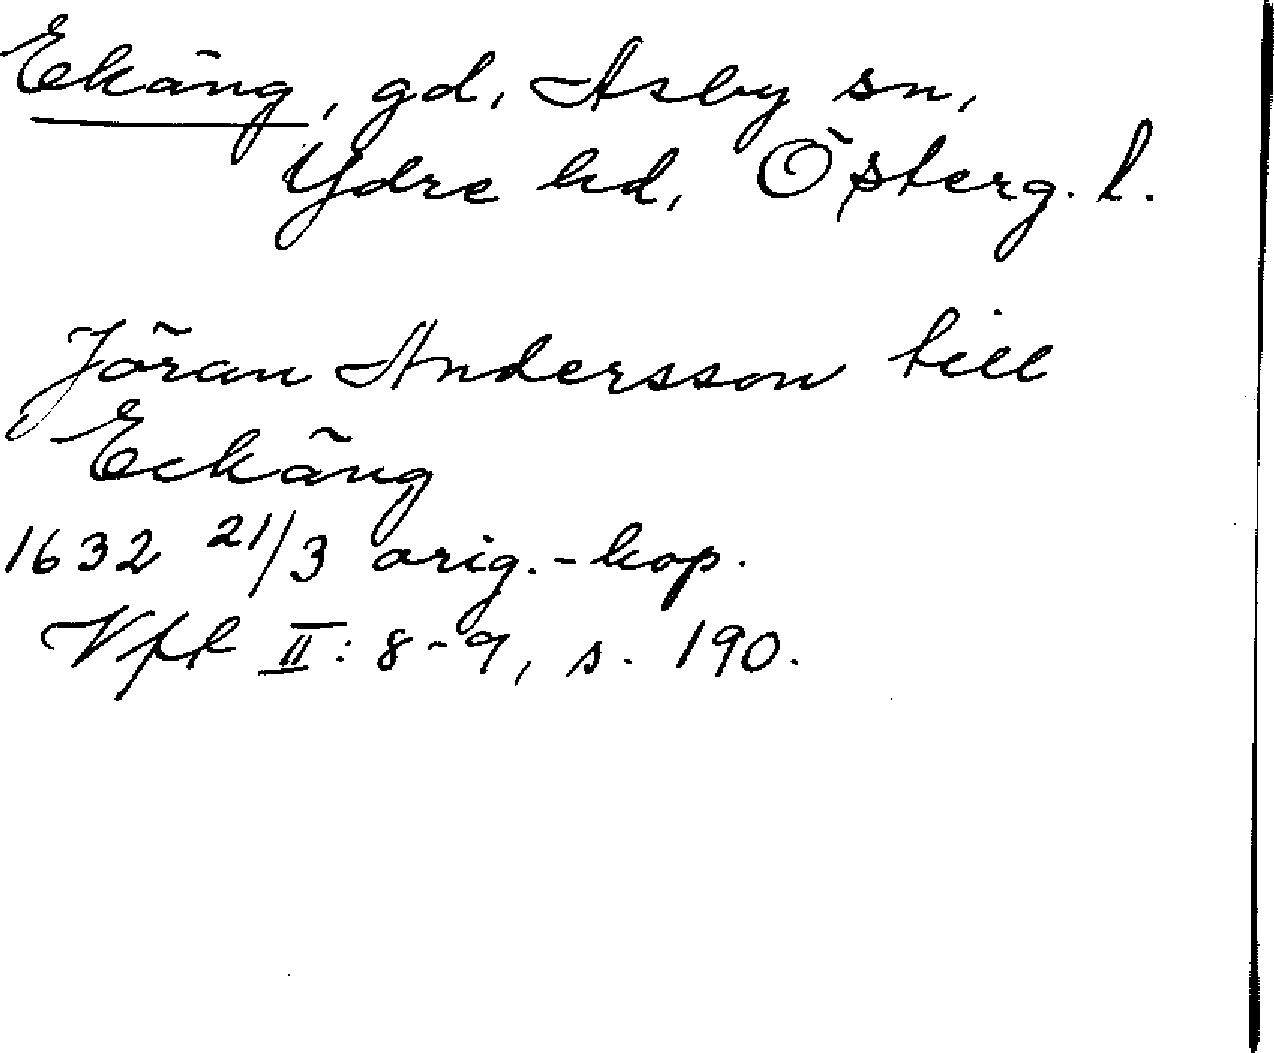 Ekäng, gd, Asby sn,
Ydre hd, Österg. l.
Jöran Andersson till
Eckäng
1632 21/3 orig.-kop.
Vfk II: 8-9, s. 190.